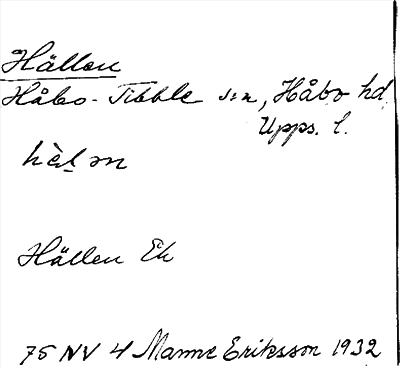 Hällen
Håbo-Tibble sn, Håbo hd
Upps. l.
hɛ̀l̠ən
Hällen Ek
75 NV 4 Manne Eriksson 1932